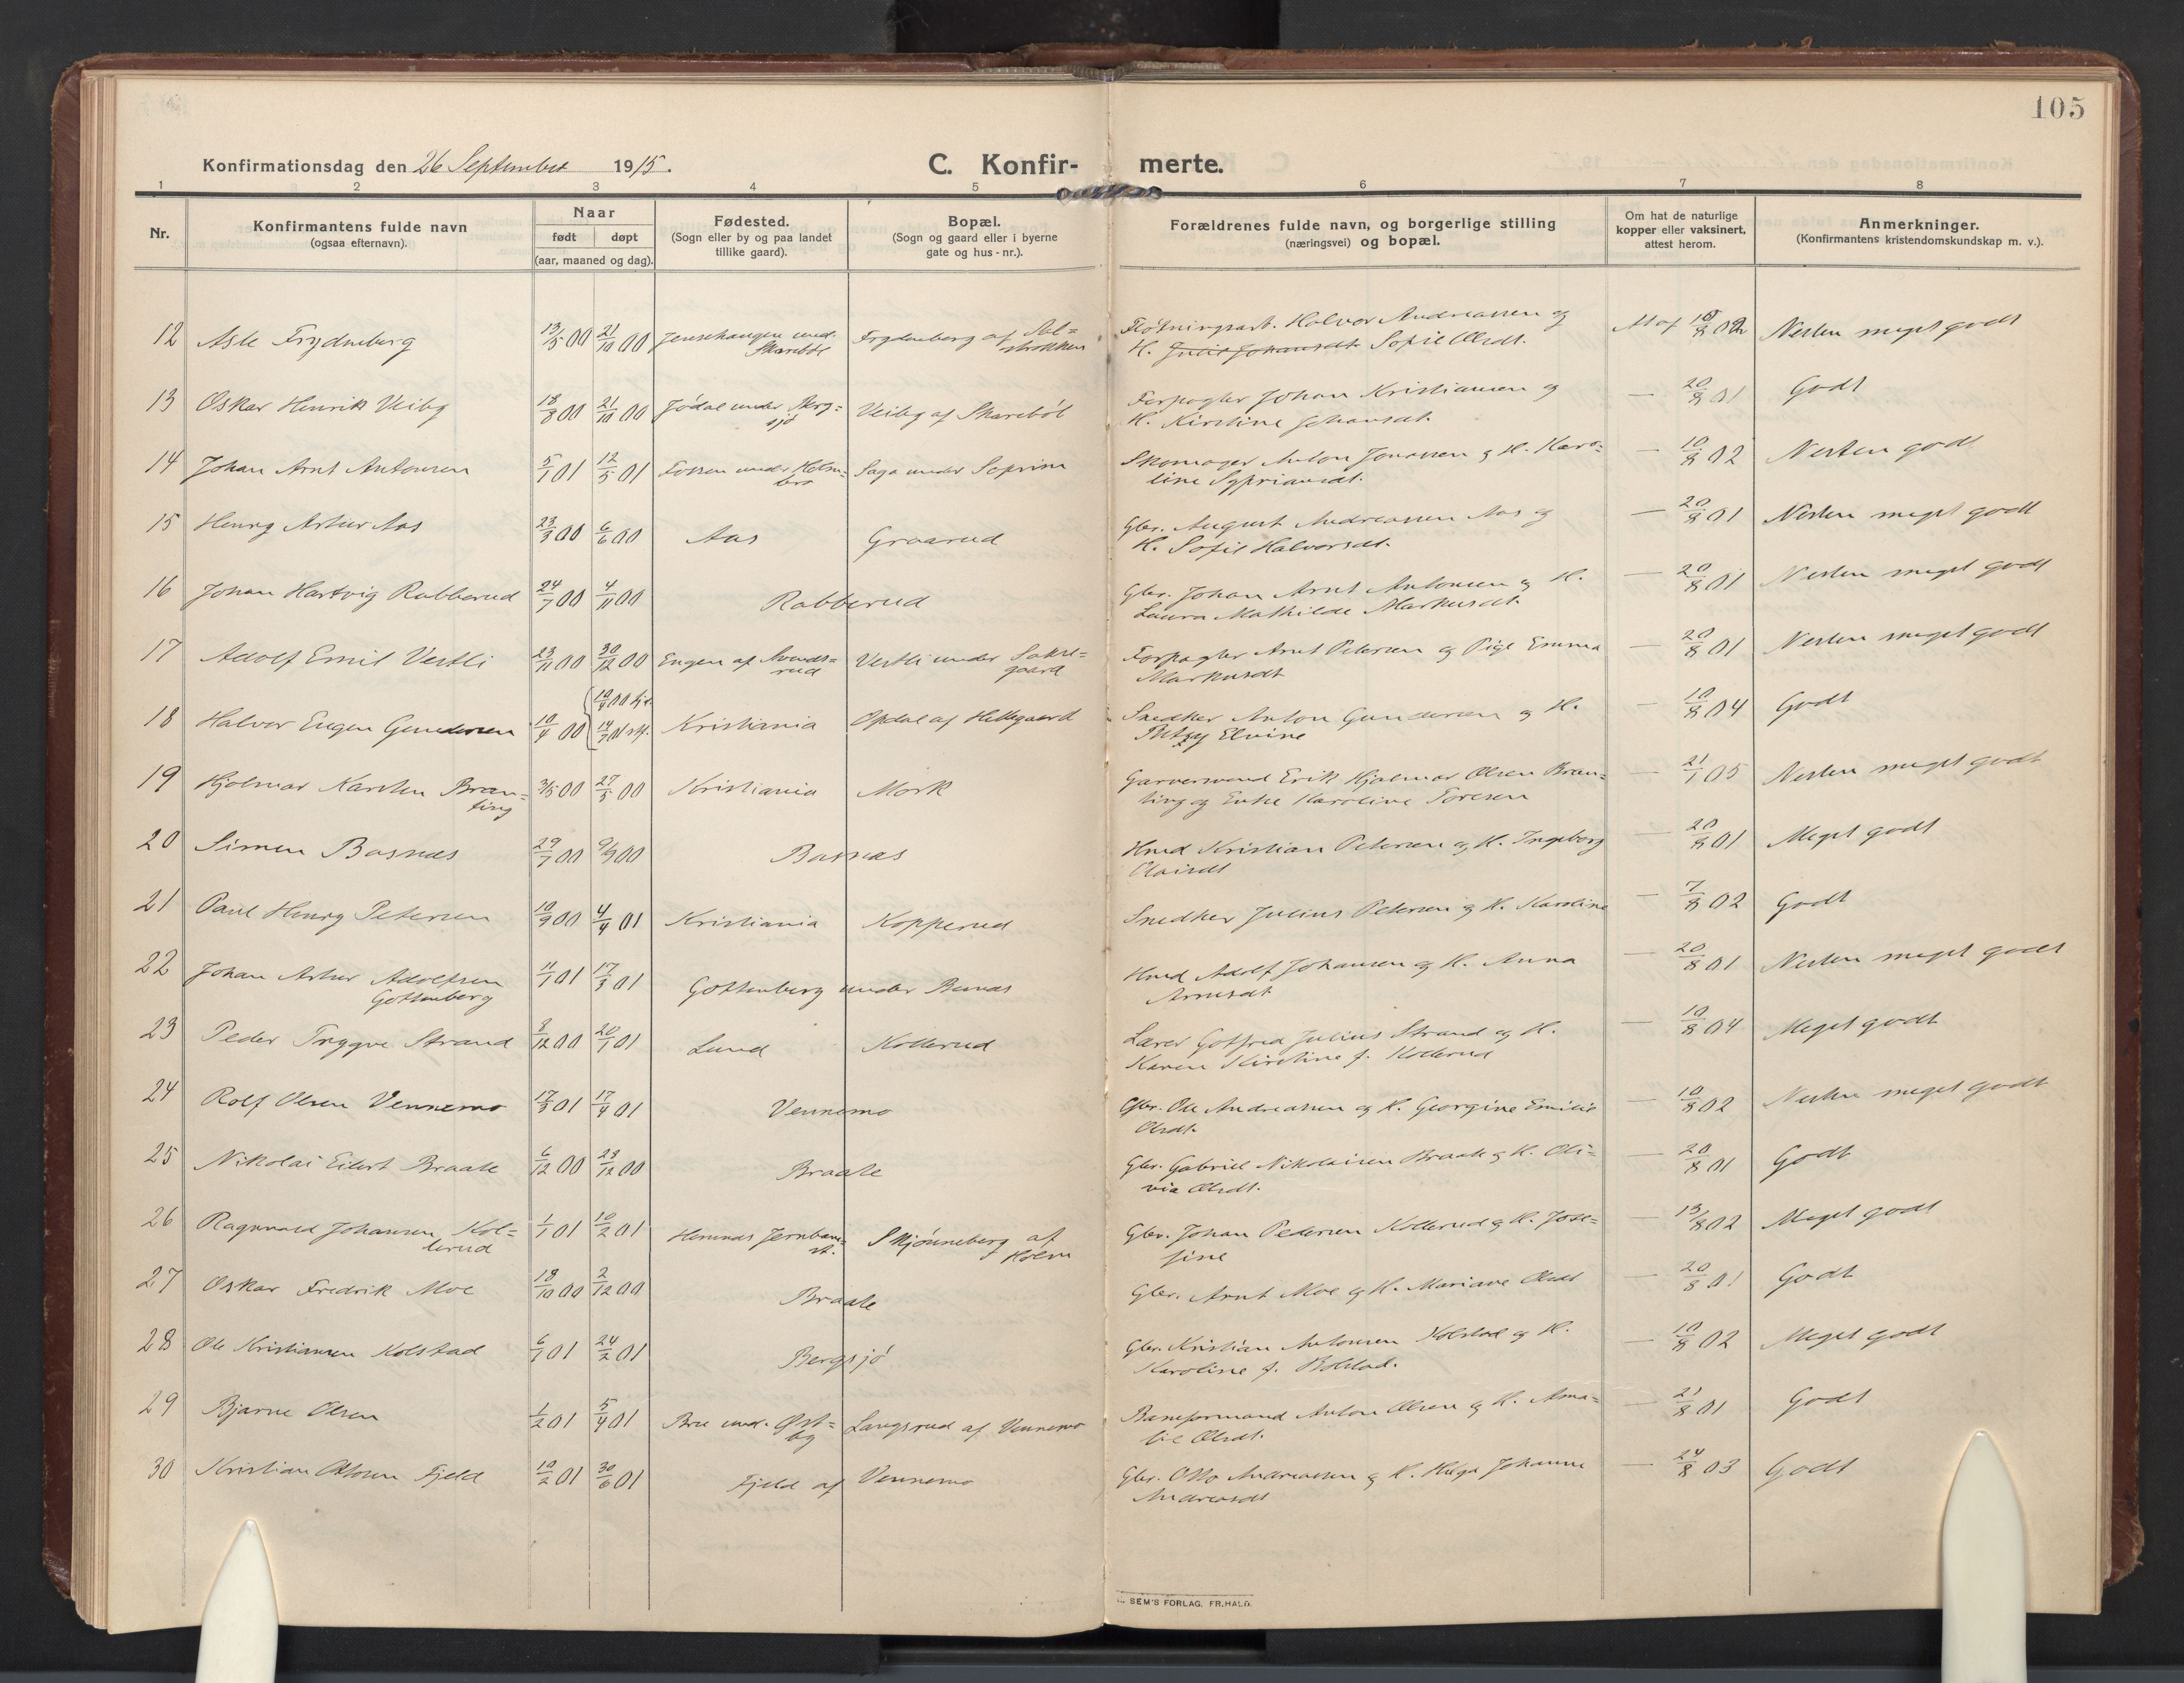 105
Konfirmationsdag den 26 September 1915.
C. Konfir- merte.
1 2 3 4 5 6 7 8
Nr.
Konfirmantens fulde navn
(ogsaa efternavn).
Naar
født døpt
(aar, maaned og dag).
Fødested.
(Sogn eller by og paa landet
tillike gaard).
Bopæl.
(Sogn og gaard eller i byerne
gate og hus-nr.).
Forældrenes fulde navn, og borgerlige stilling
(næringsvei) og bopæl.
Om hat de naturlige
kopper eller vaksinert,
attest herom.
Anmerkninger.
(Konfirmantens kristendomskundskap m. v.).
12 Asle Frydnberg 13/5 00 21/10 00 Jenshaugen und. Frydenberg af
Skarebøl
Fløtningsarb. Halvor Andreassen og
H. Julie Johansdt. Sofie Olsdt. Nesten meget godt
13 Oskar Henrik Veiby 18/8 00 21/10 00 Jødal under Berg= Veiby af Skarebøl
sjø
Forpagter Johan Kristiansen og
H. Kirstine Johansdt. — 20/8 01 Godt
14 Johan Arnt Antonsen 5/1 01 12/5 01 Fossen under Holm= Saga under Soprim
bro
Skomager Anton Jonassen og H. Karo=
line Sypriansdt. — 10/8 02 Nesten godt
15 Henry Artur Aas 23/3 00 6/6 00 Aas Graarud
Gbr. August Andreassen Aas og
H. Sofie Halvorsdt. — 20/8 01 Nesten meget godt
16 Johan Hartvig Rabberud 24/7 00 4/11 00 Rabberud
Gbr. Johan Arnt Antonsen og H.
Laura Mathilde Markusdt. — 20/8 01 Nesten meget godt
17 Adolf Emil Vestli 23/11 00 30/12 00 Engen af Avnds= Vestli under Sakse=
rud gaard
Forpagter Arnt Petersen og Pige Emma
Markusdt — 20/8 01 Nesten meget godt
18 Halvor Eugen Gundersen 10/4 00 Kristiania Opdal af Hellegaard
Snedker Anton Gundersen og H.
Elvine — 10/8 04 Godt
19 Hjalmar Karsten Bran= 3/5 00 27/5 00 Kristiania Mork
ting
Garversvend Erik Hjalmar Olsen Bran=
ting og Enke Karoline Toresen — 21/1 05 Nesten meget godt
20 Simen Basnæs 29/7 00 9/9 00 Basnæs
Hmd Kristian Petersen og H. Ingeborg
Olaisdt — 20/8 01 Meget godt
21 Paul Henry Petersen 10/9 00 4/4 01 Kristiania Kopperud
Snedker Julius Petersen og H. Karoline — 7/8 02 Godt
22 Johan Artur Adolfsen 11/1 01 17/3 01 Gottenberg under Bunæs
Gottenberg
Hmd Adolf Johansen og H. Anna
Arnesdt — 20/8 01 Nesten meget godt
23 Peder Trygve Strand 8/12 00 20/1 01 Lund Kollerud
Lærer Gotfred Julius Strand og H.
Karen Kirstine f. Kollerud — 10/8 04 Meget godt
24 Rolf Olsen Vennemo 17/3 01 17/4 01 Vennemo
Gbr. Ole Andreassen og H. Georgine Emilie
Olsdt. — 10/8 02 Nesten meget godt
25 Nikolai Eilert Braate 6/12 00 28/12 00 Braate
Gbr. Gabriel Nikolaisen Braate og H. Oli=
via Olsdt. — 20/8 01 Godt
26 Ragnvald Johansen Kol= 1/1 01 10/2 01 Hemnæs Jernban= Skjønneberg af
lerud st. Holm
Gbr. Johan Pedersen Kollerud og H. Jose=
fine — 13/8 02 Meget godt
27 Oskar Fredrik Moe 18/10 00 2/12 00 Braate
Gbr. Arnt Moe og H. Mariane Olsdt — 20/8 01 Godt
28 Ole Kristiansen Kolstad 6/1 01 24/2 01 Bergsjø
Gbr. Kristian Antonsen Kolstad og H.
Karoline f. Kolstad. — 10/8 02 Meget godt
29 Bjarne Olsen 1/2 01 5/4 01 Bru und. Øst= Langsrud af Vennemo
by
Baneformand Anton Olsen og H. Ama=
lie Olsdt. — 21/8 01 Godt
30 Kristian Ottosen Fjeld 10/2 01 30/6 01 Fjeld af Vennemo
Gbr. Otto Andreassen og H. Helga Johanne
Andreasdt — 24/8 03 Godt
SEM'S FORLAG, FR.HALD.